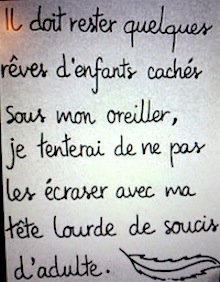 Il doit rester quelques
rêves d'enfants cachés
sous mon oreiller,
je tenterai de ne pas
les écraser avec ma
tête lourde de soucis
d'adulte.